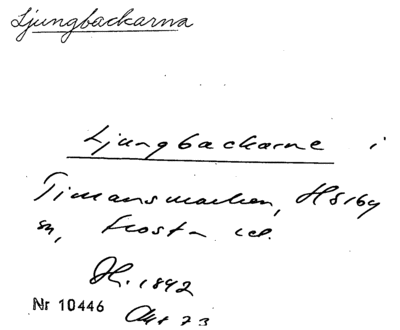 Ljungbackarna
Ljungbackarne i
Timansmarken, Hörby
sn, Frosta
1842
Nr 10446
Akt 73